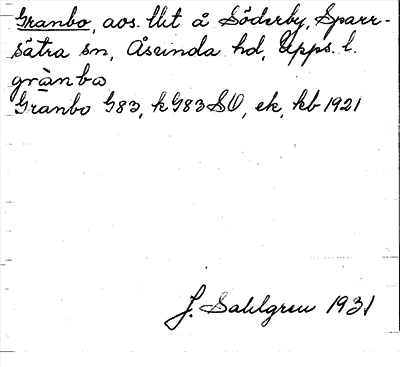 Granbo, aos. llit å Söderby, Sparr-
sätra sn, Åsunda hd, Upps. l.
grànbo
Granbo G83, k G83 SO, ek, kb 1921
J. Sahlgren 1931